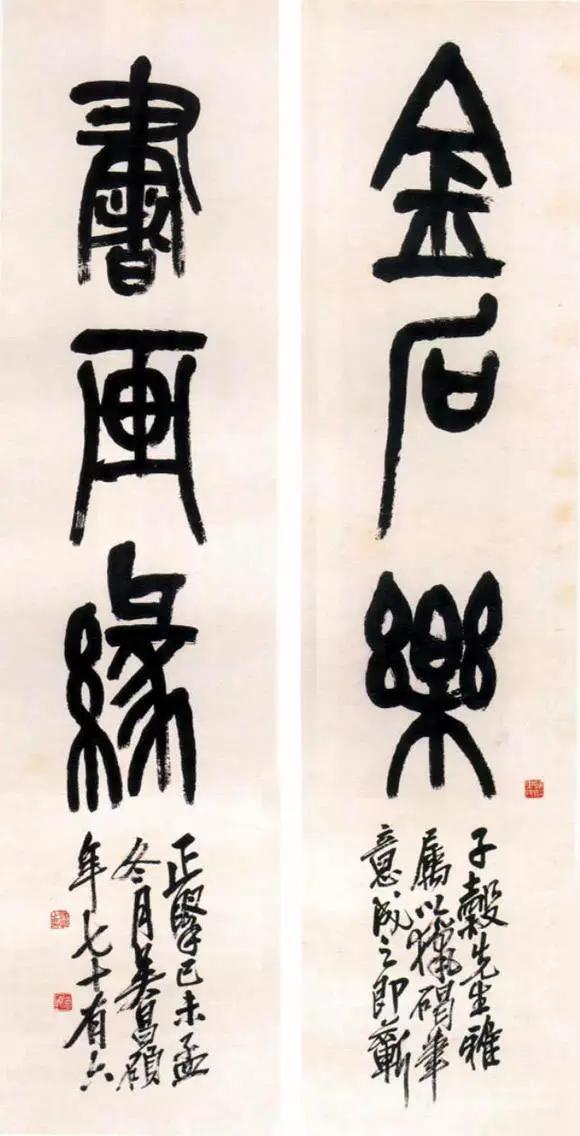 金石樂
子穀先生雅
屬以猎碣筆
意成之即蘄
書画緣
正擘己未孟
冬月吴昌碩
年七十有六